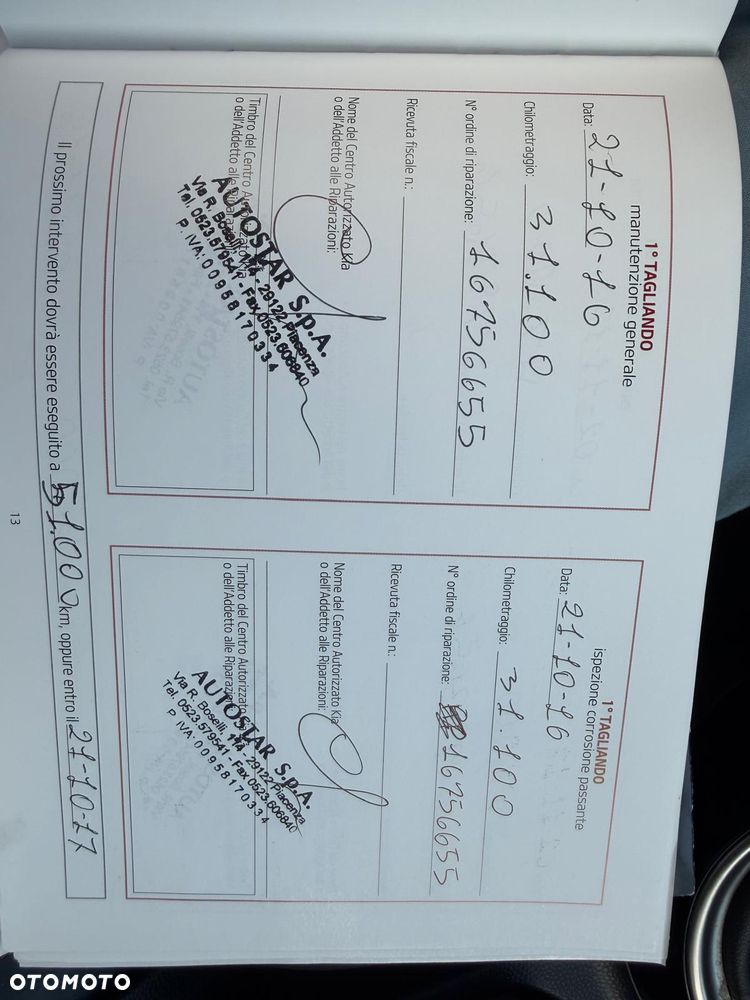 1° TAGLIANDO
manutenzione generale
Data: 21-10-16
Chilometraggio: 31.100
N° ordine di riparazione: 16756655
Ricevuta fiscale n.:
Nome del Centro Autorizzato Kia
o dell'Addetto alle Riparazioni:
Timbro del Centro Autorizzato Kia
o dell'Addetto alle Riparazioni:
AUTOSTAR S.p.A.
Via R. Boselli, 114 - 29122 Piacenza
Tel. 0523.579541 - Fax 0523.606840
P. IVA: 00958170334
1° TAGLIANDO
ispezione corrosione passante
Data: 21-10-16
Chilometraggio: 31.100
N° ordine di riparazione: 16756655
Ricevuta fiscale n.:
Nome del Centro Autorizzato Kia
o dell'Addetto alle Riparazioni:
Timbro del Centro Autorizzato
o dell'Addetto alle Riparazioni
AUTOSTAR S.p.A.
Via R. Boselli, 114 - 29122 Piacenza
Tel. 0523.579541 - Fax 0523.606840
P. IVA: 00958170334
Il prossimo intervento dovrà essere eseguito a 51.000 km, oppure entro il 21-10-17
13
OTOMOTO